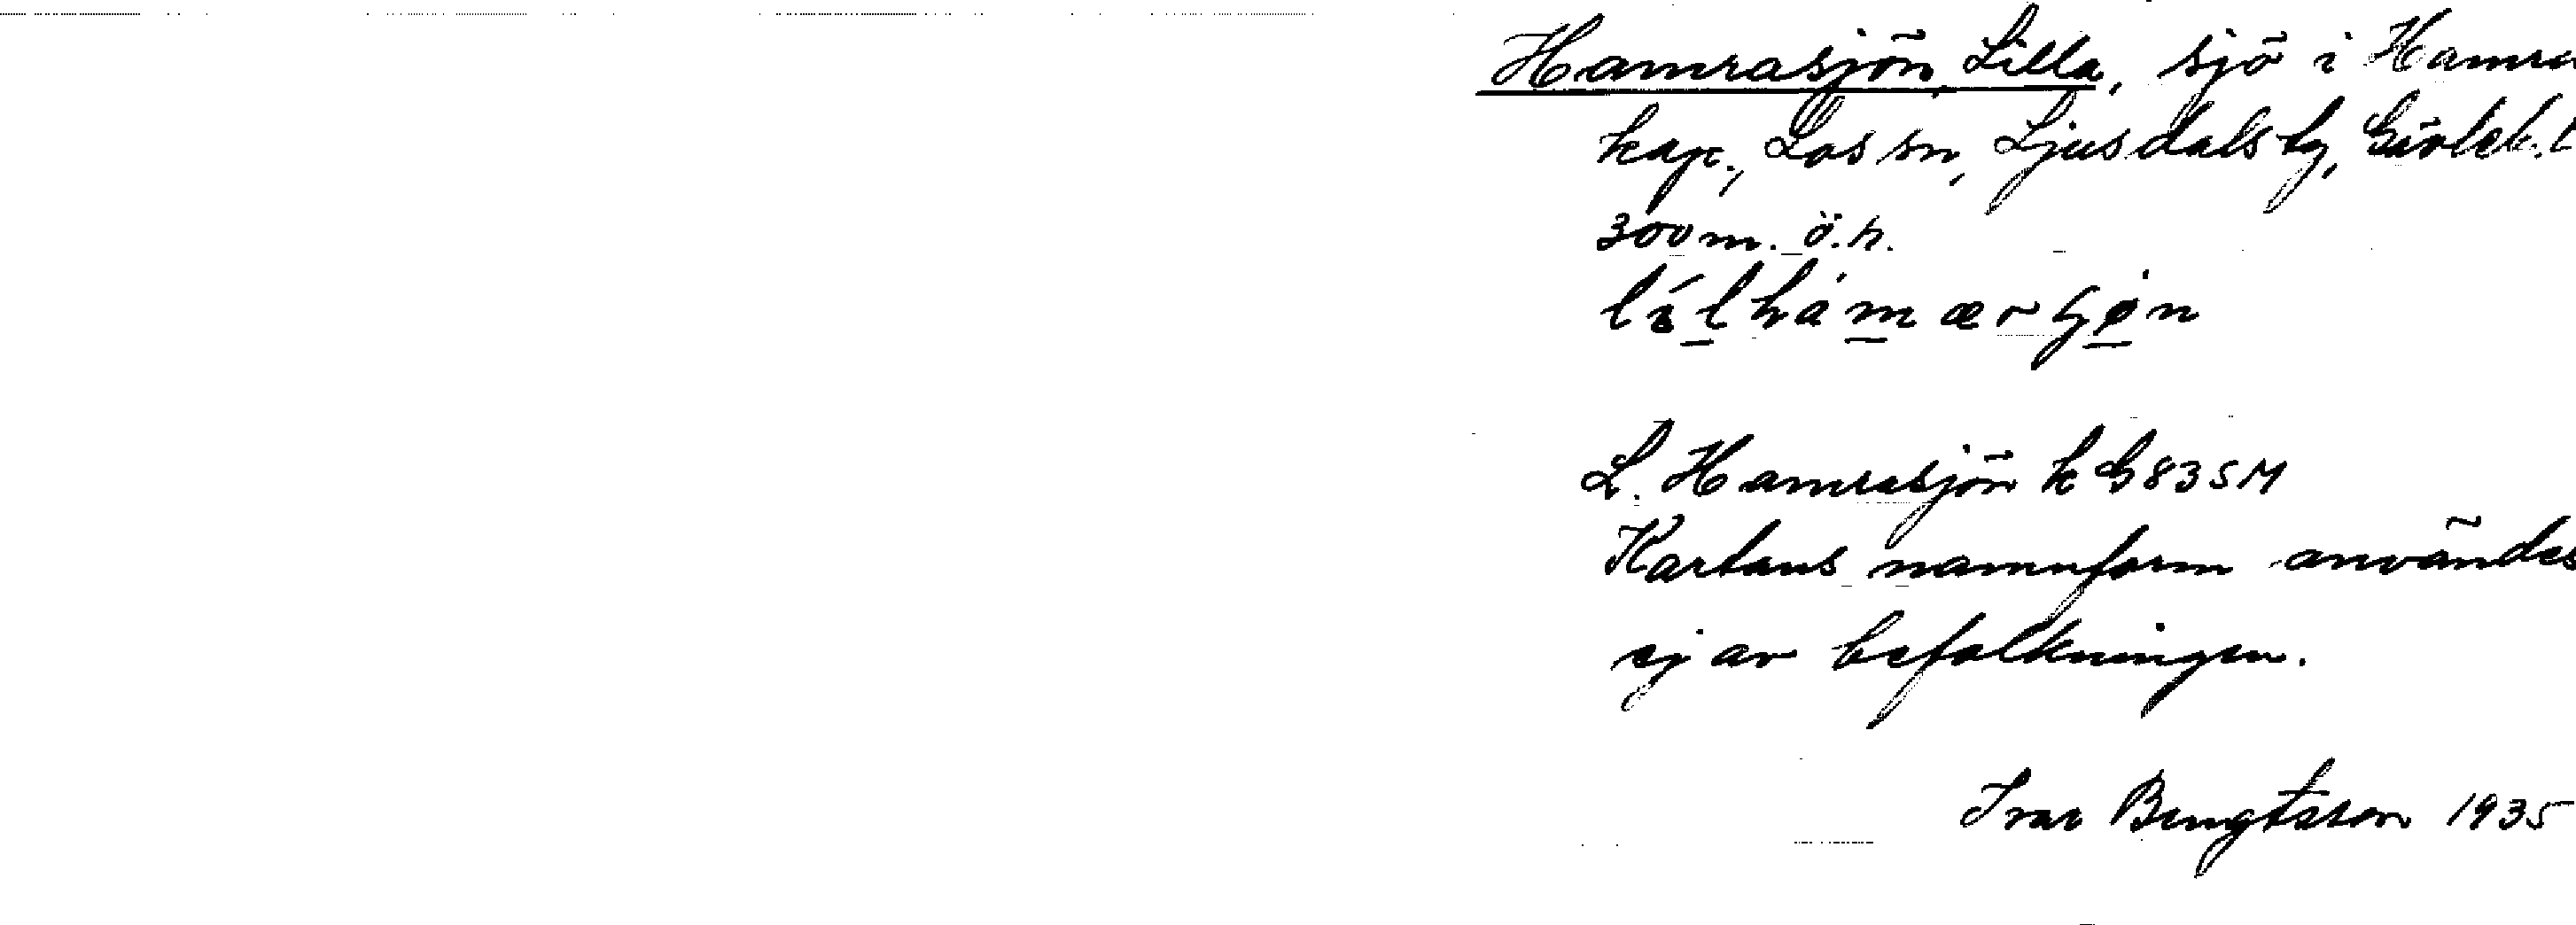 Hamrasjön, Lilla, sjö i Hamra
kap., Los sn, Ljusdals tg, Gävleb. l
300 m. ö.h.
L. Hamrasjön k G83SM
Kartans namnform användes
ej av befolkningen.
Ivar Bengtsson 1935